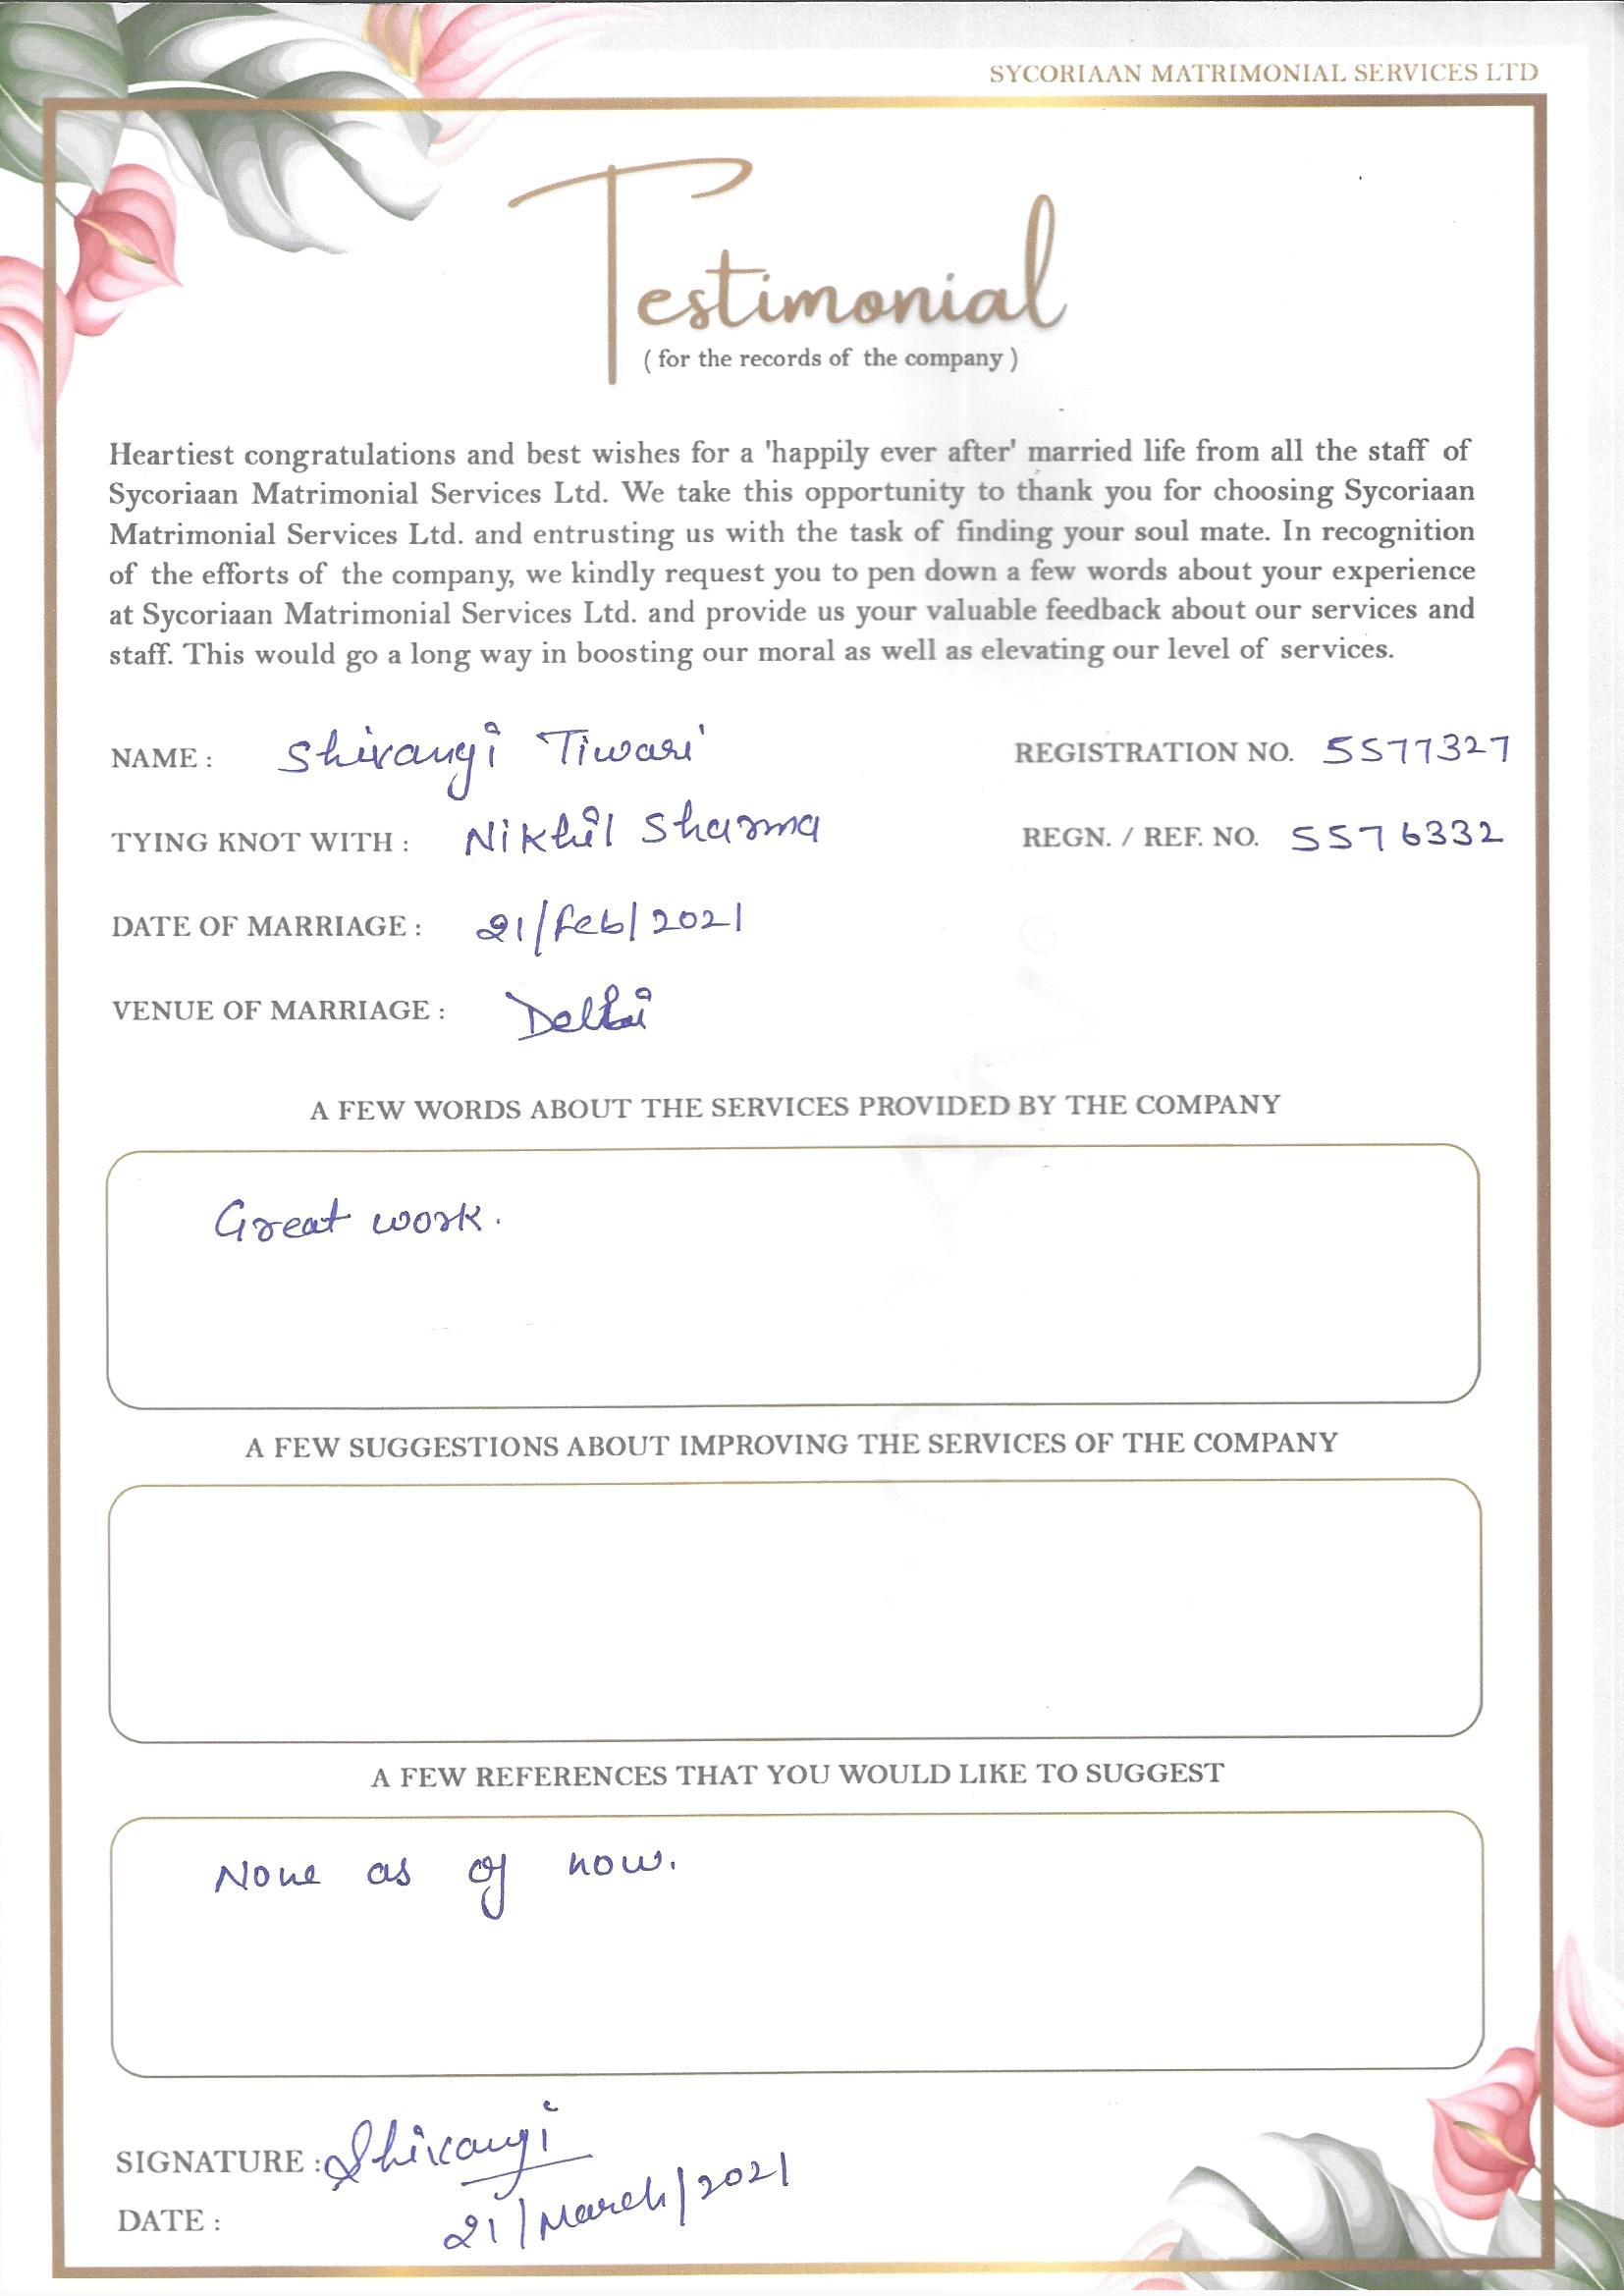 SYCORIAAN MATRIMONIAL SERVICES LTD
Testimonial
( for the records of the company )
Heartiest congratulations and best wishes for a 'happily ever after' married life from all the staff of
Sycoriaan Matrimonial Services Ltd. We take this opportunity to thank you for choosing Sycoriaan
Matrimonial Services Ltd. and entrusting us with the task of finding your soul mate. In recognition
of the efforts of the company, we kindly request you to pen down a few words about your experience
at Sycoriaan Matrimonial Services Ltd. and provide us your valuable feedback about our services and
staff. This would go a long way in boosting our moral as well as elevating our level of services.
NAME : Shivangi Tiwari REGISTRATION NO. 5577327
TYING KNOT WITH : Nikhil Sharma REGN. / REF. NO. 5576332
DATE OF MARRIAGE : 21/Feb/2021
VENUE OF MARRIAGE : Delhi
A FEW WORDS ABOUT THE SERVICES PROVIDED BY THE COMPANY
Great work.
A FEW SUGGESTIONS ABOUT IMPROVING THE SERVICES OF THE COMPANY
A FEW REFERENCES THAT YOU WOULD LIKE TO SUGGEST
None as of now.
SIGNATURE : Shivangi
DATE : 21/March/2021